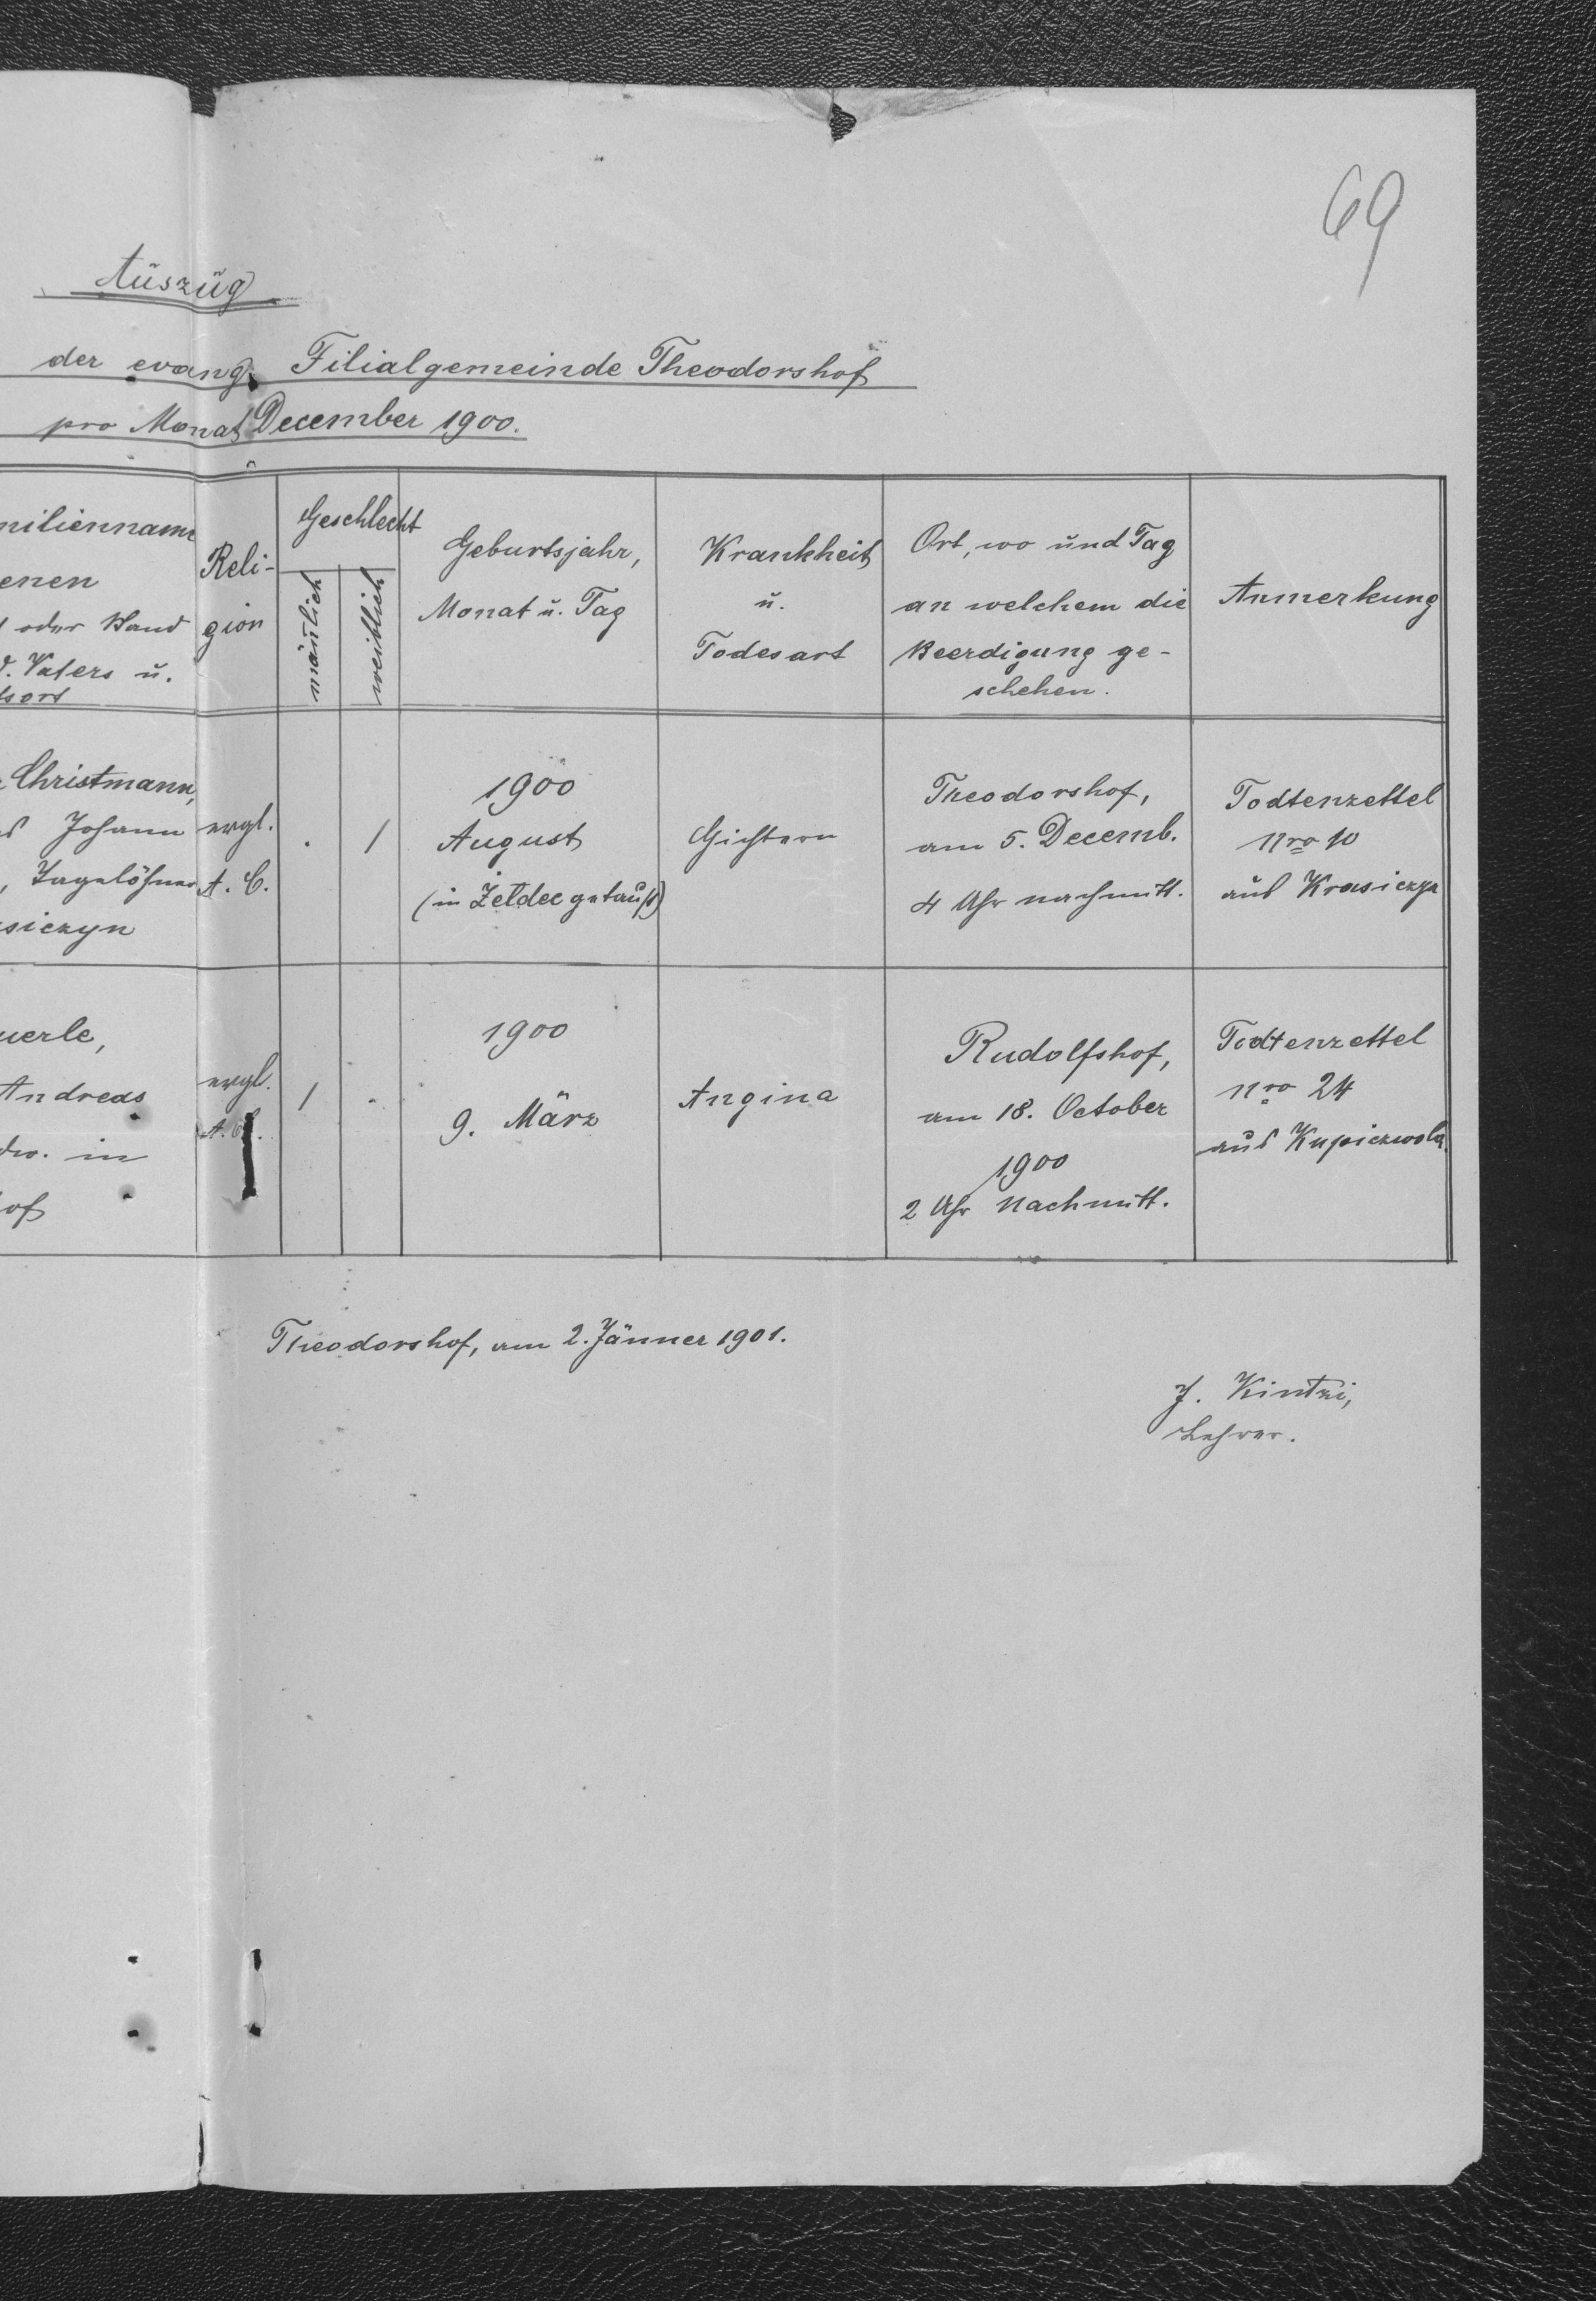 69
Auszug
der evang. Filialgemeinde Theodorshof
pro Monat December 1900.
milienname
enen
oder Stand
d. Vaters u.
tsort
Reli-
gion
Geschlecht
mänlich
weiblich
Geburtsjahr,
Monat u. Tag
Krankheit
u.
Todesart
Ort, wo und Tag
an welchem die
Beerdigung ge-
schehen.
Anmerkung
Christmann,
Johann
, Tagelöhner
siczyn
evgl.
A. C.
.
1
1900
August
(in Zeldec getauft)
Gichtern
Theodorshof,
am 5. Decemb.
4 Uhr nachmitt.
Todtenzettel
Nro 10
aus Krasiczyn
uerle,
Andreas
dw. in
of
evgl.
A. C.
1
.
1900
9. März
Angina
Rudolfshof,
am 18. October
1900
2 Uhr Nachmitt.
Todtenzettel
Nro 24
aus Kupiczwola.
Theodorshof, am 2. Jänner 1901.
J. Kintzi,
Lehrer.